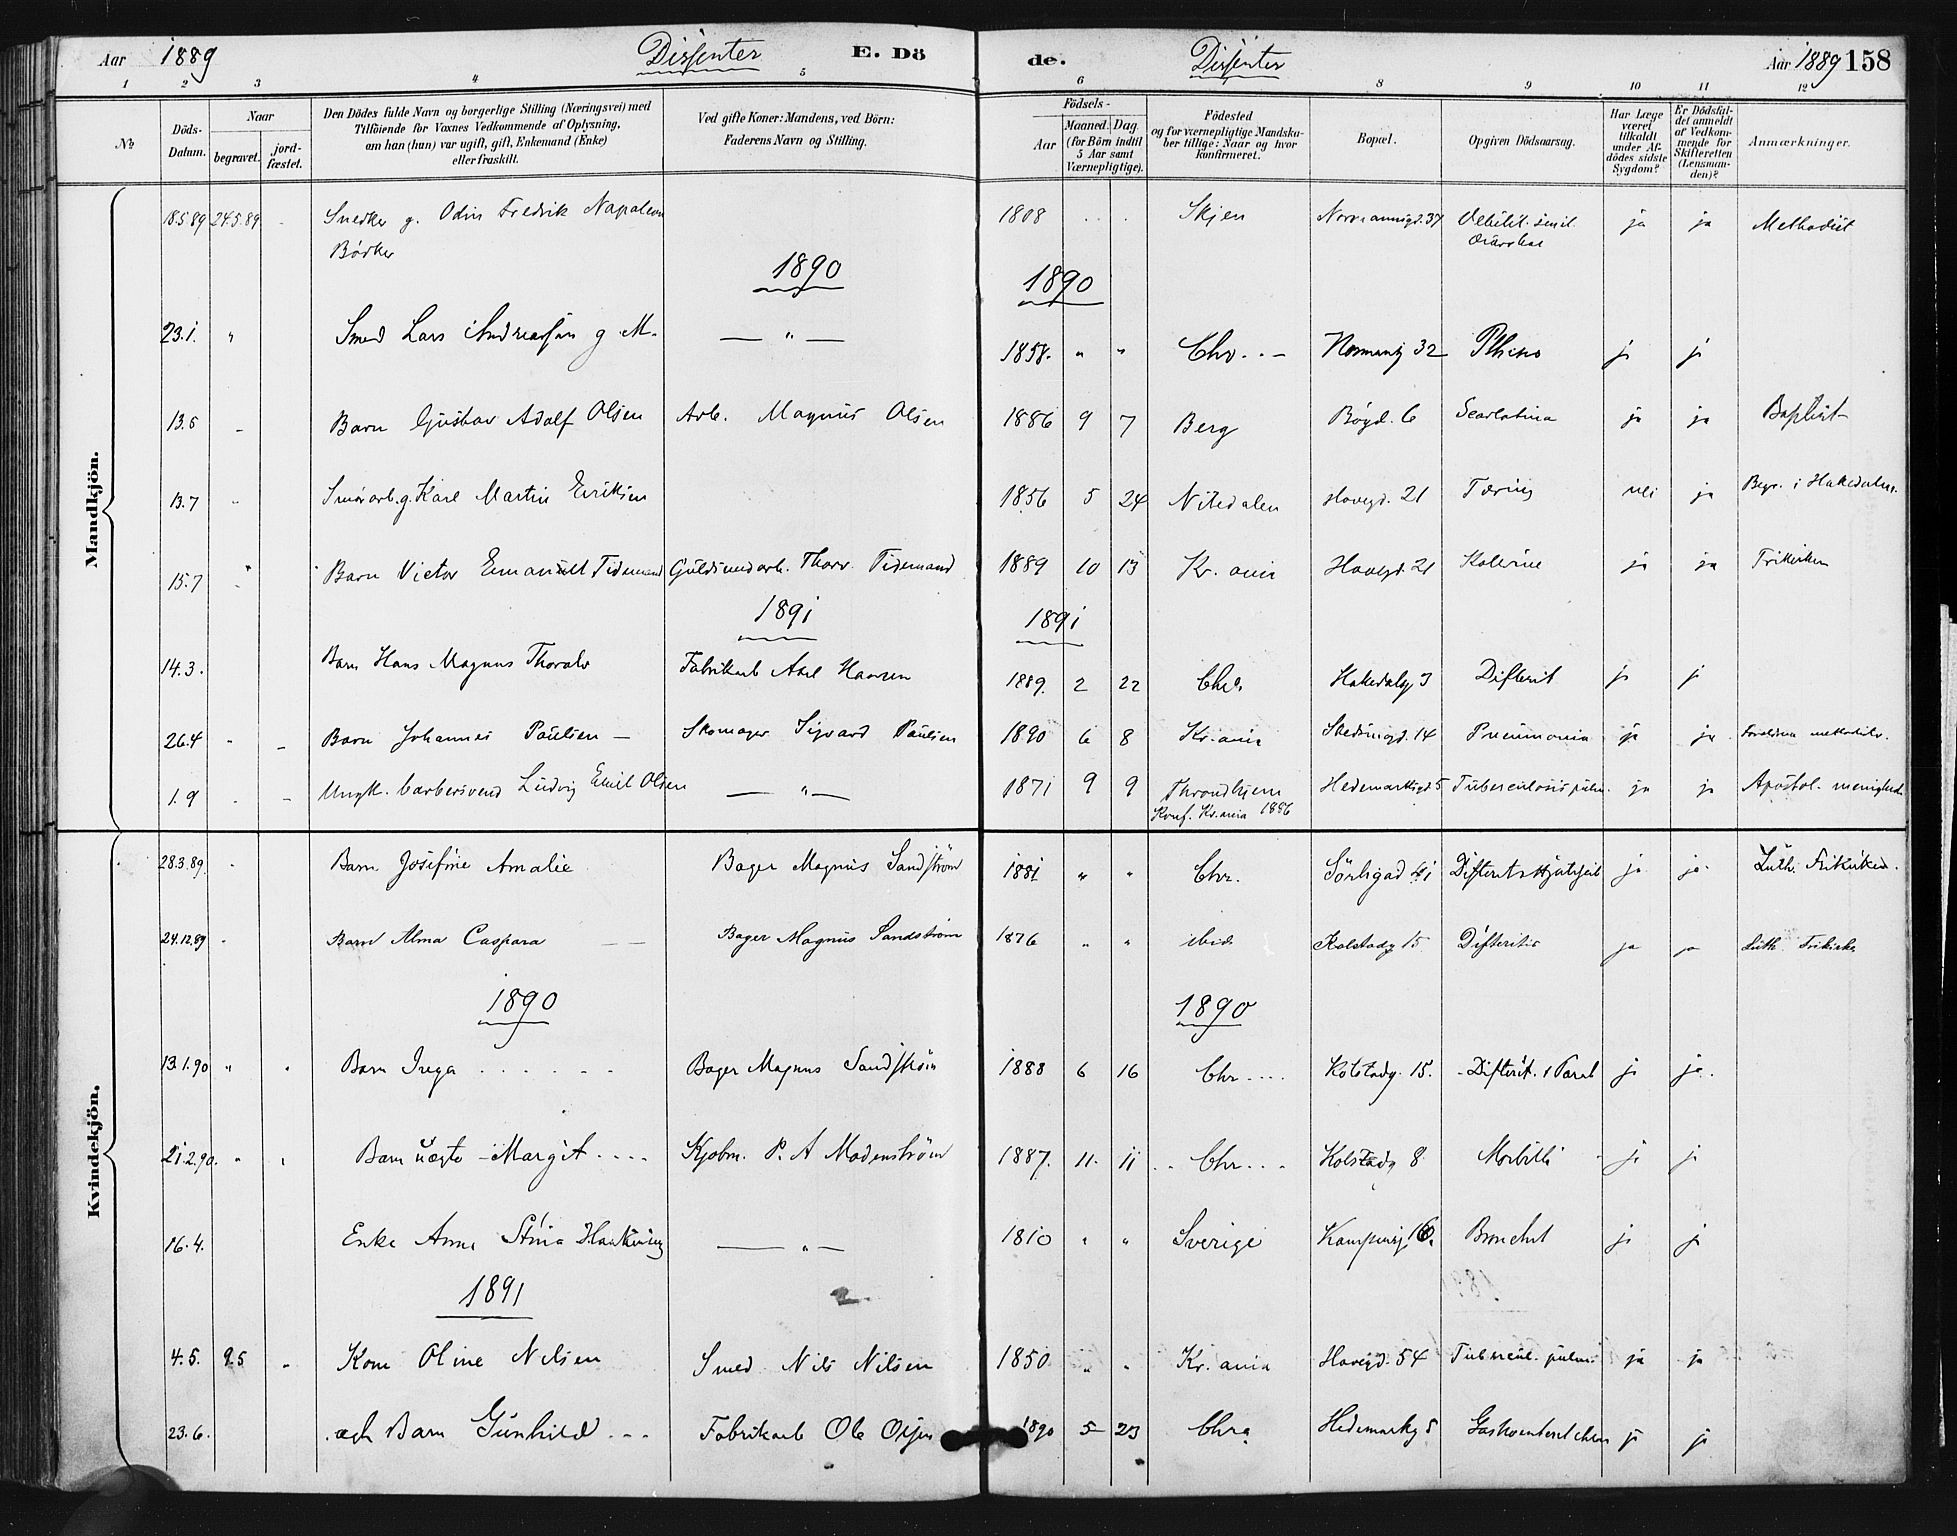 Aar 1889 Dissenter E. Dö
de. Dissenter Aar 1889 158
1 2 3 4 5 6 8 9 10 11 12
No
Döds-Datum.
Naar
begravet. jordfæstet.
Den Dödes fulde Navn og borgerlige Stilling (Næringsvei) med
Tilföiende for Voxnes Vedkommende af Oplysning,
om han (hun) var ugift, gift, Enkemand (Enke)
eller fraskilt.
Ved gifte Koner: Mandens, ved Börn:
Faderens Navn og Stilling.
Födsels-
Aar Maaned. Dag.
(for Börn indtil
5 Aar samt
Værnepligtige).
Födested
og for værnepligtige Mandskaber tillige: Naar og hvor
konfirmeret.
Bopæl.
Opgiven Dödsaarsag.
Har Læge
været
tilkaldt
under Afdödes sidste
Sygdom?
Er Dödsfaldet anmeldt
af Vedkommende for
Skifteretten
(Lensmanden)?
Anmærkninger.
Mandkjön.
18.5 89 24.5.89 Snedker g. Odin Fredrik Napoleon 1808 Skjen 37 ja ja Methodist
Bödker
1890 1890
23.1. " Smed Lars Andreassen g M. — " — 1858. " " Chr. Normannsg 32 Phtisis ja ja
13.5 Barn Gustav Adolf Olsen Arb. Magnus Olsen 1886 9 7 Berg Böigd. 6 Scarlatina ja ja Baptist
13.7 Smörarb. g. Karl Martin Eriksen 1856 5 24 Nitedalen Havegd. 21 Tæring nei ja Begr. i Hakedalen.
15.7 Barn Victor Emanuel Tidemand Guldsmedarb. Thorv. Tidemand 1889 10 13 Kr.ania Havegd. 21 Kolerine ja ja Frikirken
1891 1891
14.3. Barn Hans Magnus Thoralv Fabrikarb Axel Hansen 1889. 2 22 Chra Hakedalsg 3 Difterit ja ja
26.4 Barn Johannes Paulsen — Skomager Sigvard Paulsen 1890 6 8 Kr.ania Skedsmogd. 14 Pneumonia ja ja Foreldrene methodister.
1.9 Ungk. barbersvend Ludvig Emil Olsen — " — 1871 9 9 Throndhjem Hedemarksgd 5 Tuberculosis pulm. ja ja Apostol. menighed
Konf. Kr.ania 1886
Kvindekjön.
28.3.89. Barn Josefine Amalie Bager Magnus Sandström 1881 " " Chr. Sörligad 41 ja ja Luth. Frikirken.
24.12.89 Barn Alma Caspara — — Bager Magnus Sandström 1876 " " ibid. Kolstadg 15 Difteritis ja ja Luth. Frikirke
1890 1890
13.1.90 " Barn Inga Bager Magnus Sandström 1888 6 16 Chr Kolstadg. 15. Difterit. ja ja.
21.2.90. " Barn uægte Margit Kjøbm. P. A Modenström 1887. 11. 11 Chr Kolstadg 8 Morbilli ja ja
16.4. Enke Anne Stina — " — 1810 " " Sverige Kampensg 16. Bronchit ja ja
1891
4.5. 9.5 Kone Oline Nilsen Smed Nils Nilsen 1850 " " Kr.ania Havegd. 54 Tubercul. pulm. ja ja
23.6. ægte Barn Gunhild Fabrikarb Ole Olsen 1890 5 23 Chra Hedemarksg 5 ja ja